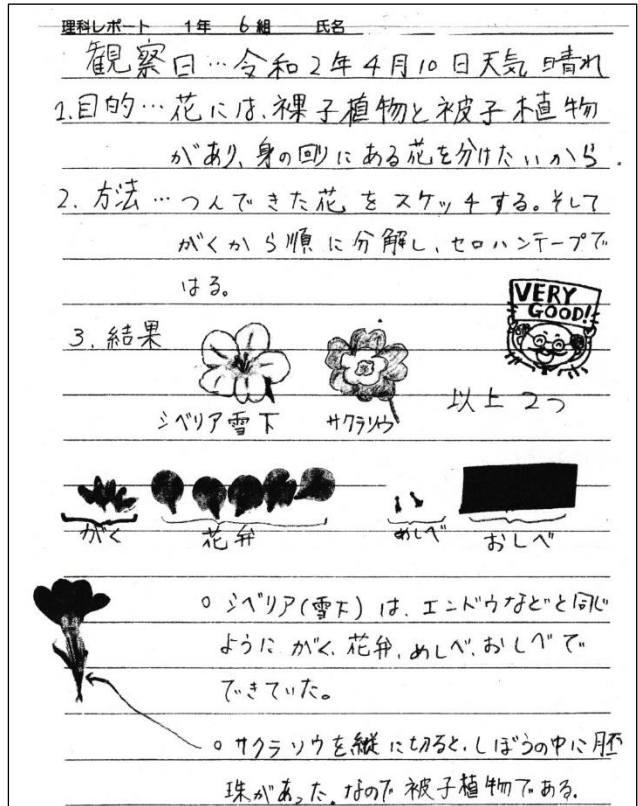 理科レポート 1年 6組 氏名
観察日…令和2年4月10日天気 晴れ
1.目的…花には、裸子植物と被子植物
があり、身の回りにある花を分けたいから.
2. 方法…つんできた花をスケッチする。そして
がくから順に分解し、セロハンテープで
はる。
VERY
GOOD!
3. 結果
以上 2つ
シベリア雪下 サクラソウ
がく 花弁 めしべ おしべ
○シベリア(雪下)は、エンドウなどと同じ
ように がく、花弁、めしべ、おしべで
できていた。
○サクラソウを縦に切ると、しぼうの中に胚
珠があった。なので被子植物である.